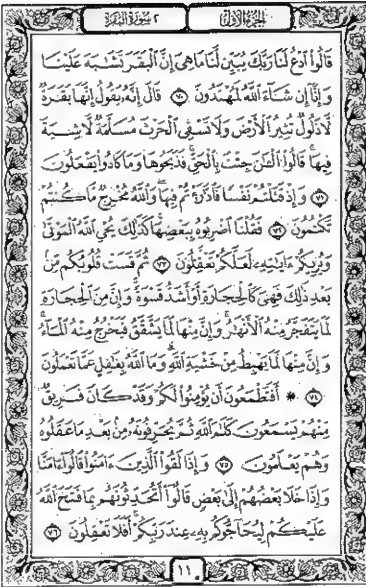 الجزء الأول ٢ سورة البقرة
قَالُوا۟ ٱدْعُ لَنَا رَبَّكَ يُبَيِّن لَّنَا مَا هِىَ إِنَّ ٱلْبَقَرَ تَشَٰبَهَ عَلَيْنَا
وَإِنَّآ إِن شَآءَ ٱللَّهُ لَمُهْتَدُونَ ٧٠ قَالَ إِنَّهُۥ يَقُولُ إِنَّهَا بَقَرَةٌ
لَّا ذَلُولٌ تُثِيرُ ٱلْأَرْضَ وَلَا تَسْقِى ٱلْحَرْثَ مُسَلَّمَةٌ لَّا شِيَةَ
فِيهَا ۚ قَالُوا۟ ٱلْـَٰٔنَ جِئْتَ بِٱلْحَقِّ ۚ فَذَبَحُوهَا وَمَا كَادُوا۟ يَفْعَلُونَ
٧١ وَإِذْ قَتَلْتُمْ نَفْسًا فَٱدَّٰرَْٰٔتُمْ فِيهَا ۖ وَٱللَّهُ مُخْرِجٌ مَّا كُنتُمْ
تَكْتُمُونَ ٧٢ فَقُلْنَا ٱضْرِبُوهُ بِبَعْضِهَا ۚ كَذَٰلِكَ يُحْىِ ٱللَّهُ ٱلْمَوْتَىٰ
وَيُرِيكُمْ ءَايَٰتِهِۦ لَعَلَّكُمْ تَعْقِلُونَ ٧٣ ثُمَّ قَسَتْ قُلُوبُكُم مِّنۢ
بَعْدِ ذَٰلِكَ فَهِىَ كَٱلْحِجَارَةِ أَوْ أَشَدُّ قَسْوَةً ۚ وَإِنَّ مِنَ ٱلْحِجَارَةِ
لَمَا يَتَفَجَّرُ مِنْهُ ٱلْأَنْهَٰرُ ۚ وَإِنَّ مِنْهَا لَمَا يَشَّقَّقُ فَيَخْرُجُ مِنْهُ ٱلْمَآءُ ۚ
وَإِنَّ مِنْهَا لَمَا يَهْبِطُ مِنْ خَشْيَةِ ٱللَّهِ ۗ وَمَا ٱللَّهُ بِغَٰفِلٍ عَمَّا تَعْمَلُونَ
٧٤ * أَفَتَطْمَعُونَ أَن يُؤْمِنُوا۟ لَكُمْ وَقَدْ كَانَ فَرِيقٌ
مِّنْهُمْ يَسْمَعُونَ كَلَٰمَ ٱللَّهِ ثُمَّ يُحَرِّفُونَهُۥ مِنۢ بَعْدِ مَا عَقَلُوهُ
وَهُمْ يَعْلَمُونَ ٧٥ وَإِذَا لَقُوا۟ ٱلَّذِينَ ءَامَنُوا۟ قَالُوٓا۟ ءَامَنَّا
وَإِذَا خَلَا بَعْضُهُمْ إِلَىٰ بَعْضٍ قَالُوٓا۟ أَتُحَدِّثُونَهُم بِمَا فَتَحَ ٱللَّهُ
عَلَيْكُمْ لِيُحَآجُّوكُم بِهِۦ عِندَ رَبِّكُمْ ۚ أَفَلَا تَعْقِلُونَ ٧٦
١١